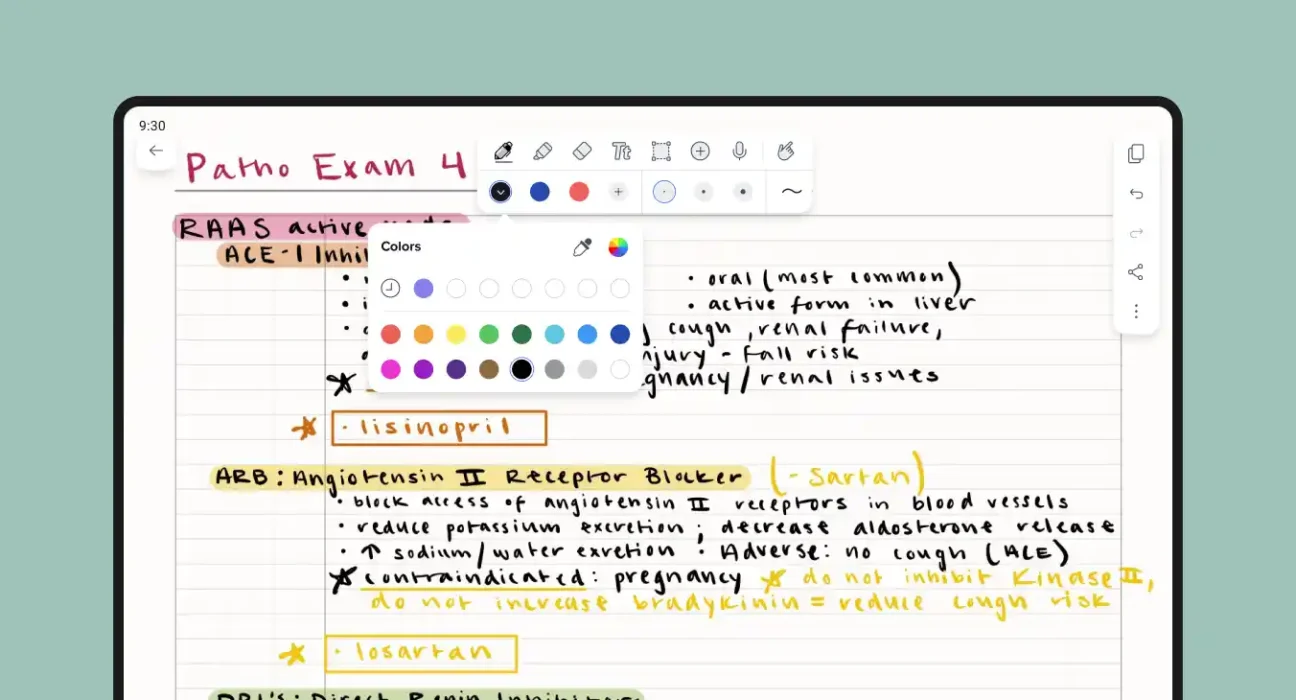 9:30
Patho Exam 4
Tt
RAAS active
Colors
ACE-I Inhi
• oral (most common)
• active form in liver
cough, renal failure,
njury - fall risk
gnancy / renal issues
· lisinopril
ARB: Angiotensin II Receptor Blocker (-sartan)
• block access of angiotensin II receptors in blood vessels
• reduce potassium excretion; decrease aldosterone release
• ↑ sodium/water exretion • Adverse: no cough (ACE)
contraindicated: pregnancy ☆ do not inhibit Kinase II,
do not increase bradykinin = reduce cough risk
· losartan
DRI's: Direct Renin Inhibitors